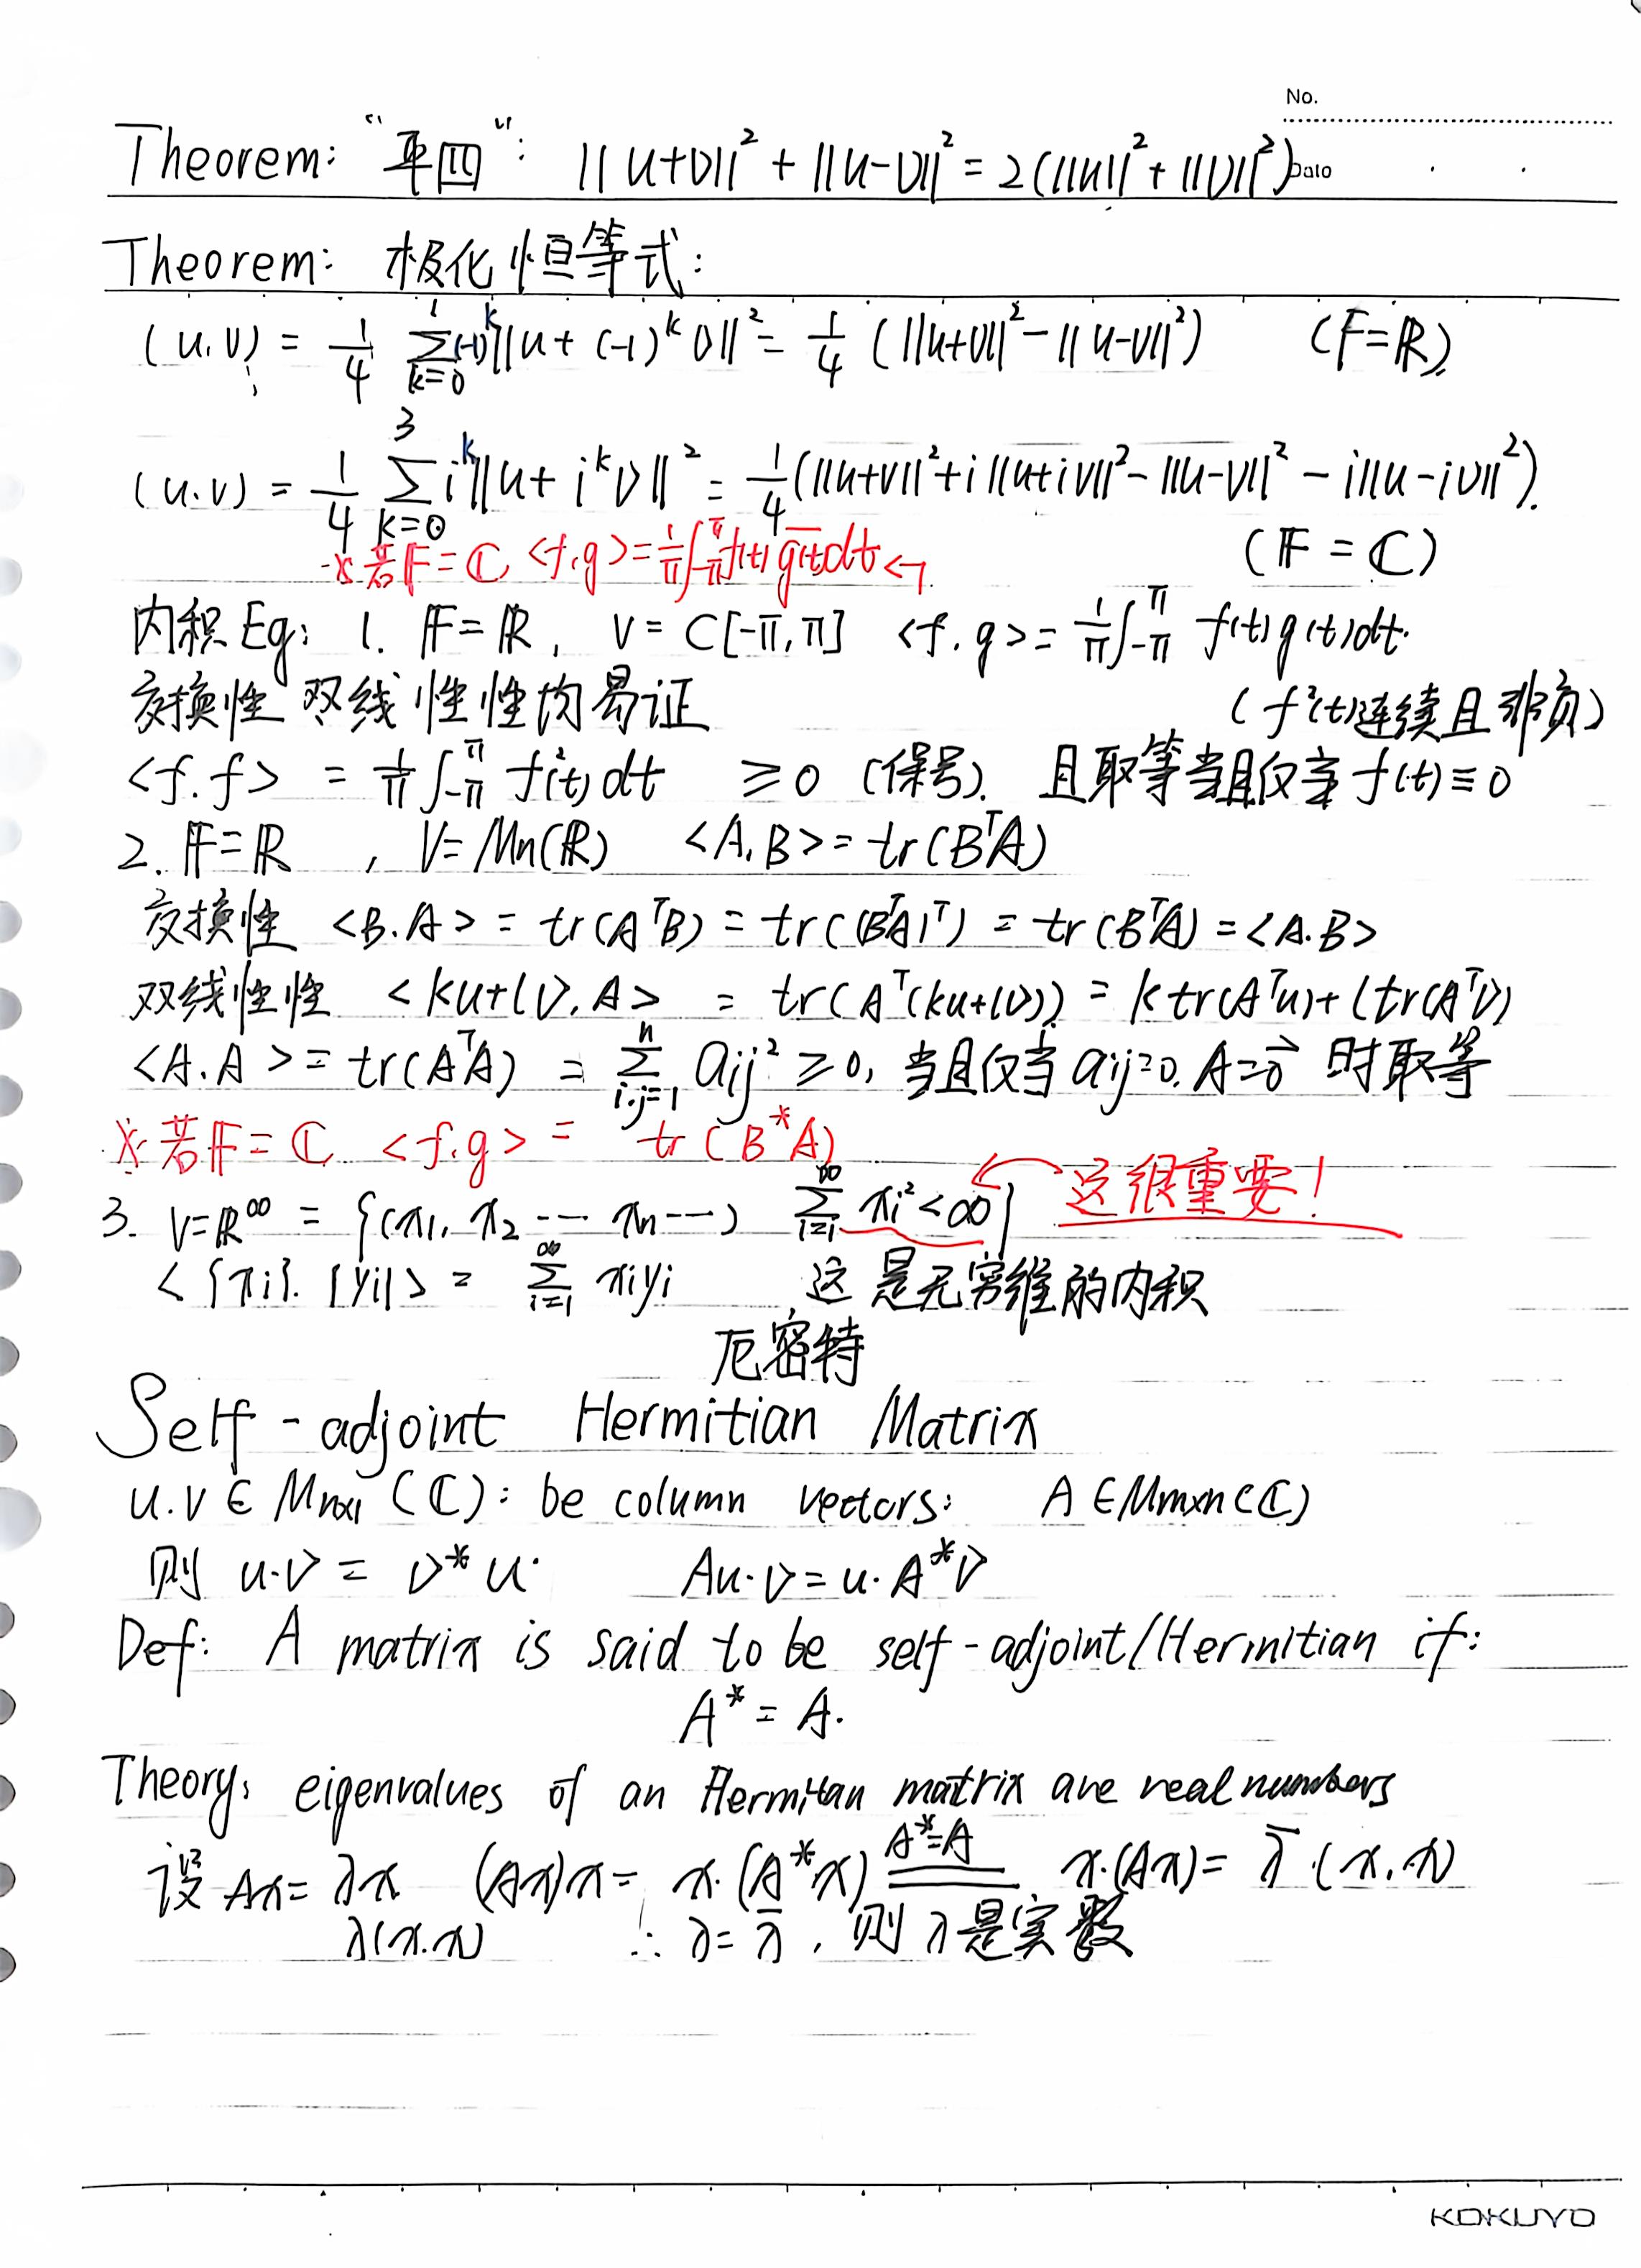 No.
Theorem: "平四": ||u+v||² + ||u-v||² = 2(||u||² + ||v||²)
Date
Theorem: 极化恒等式:
(u.v) = 1/4 ∑_{k=0}^{1} (-1)^k ||u + (-1)^k v||² = 1/4 (||u+v||² - ||u-v||²) (F=ℝ)
(u.v) = 1/4 ∑_{k=0}^{3} i^k ||u + i^k v||² = 1/4 (||u+v||² + i||u+iv||² - ||u-v||² - i||u-iv||²).
(𝔽 = ℂ)
※若𝔽=ℂ <f.g> = 1/π ∫_{-π}^{π} f(t) \overline{g(t)} dt ←
内积 Eg: 1. 𝔽=ℝ, V = C[-π,π] <f.g> = 1/π ∫_{-π}^{π} f(t)g(t)dt.
交换性 双线性性均易证 (f²(t)连续且非负)
<f.f> = 1/π ∫_{-π}^{π} f²(t)dt ≥0 (保号). 且取等当且仅当 f(t)≡0
2. 𝔽=ℝ , V=Mn(ℝ) <A.B> = tr(BᵀA)
交换性 <B.A> = tr(AᵀB) = tr((BᵀA)ᵀ) = tr(BᵀA) = <A.B>
双线性性 <ku+lv.A> = tr(Aᵀ(ku+lv)) = ktr(Aᵀu)+ltr(Aᵀv)
<A.A> = tr(AᵀA) = ∑_{i.j=1}^{n} aij² ≥0, 当且仅当 aij=0. A=\vec{0} 时取等
※若𝔽=ℂ <f.g> = tr(B*A)
这很重要!
3. V=ℝ^∞ = {(x1, x2 ---- xn ---) ∑_{i=1}^{∞} xi² <∞}
<{xi}. {yi}> = ∑_{i=1}^{∞} xiyi 这是无穷维的内积
厄密特
Self-adjoint Hermitian Matrix
u.v ∈ Mnx1(ℂ): be column vectors: A∈Mmxn(ℂ)
则 u·v = v*u. Au·v = u·A*v
Def: A matrix is said to be self-adjoint/Hermitian if:
A* = A.
Theory: eigenvalues of an Hermitan matrix are real numbers
设 Ax=λx (Ax)x = x·(A*x) \overset{A*=A}{=} x·(Ax) = \bar{λ}·(x.x)
λ(x.x) ∴ λ=\bar{λ}, 则λ是实数
KOKUYO